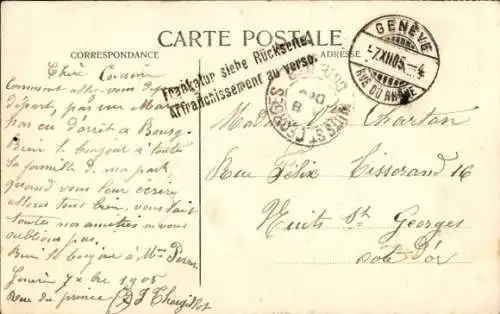 CARTE POSTALE
CORRESPONDANCE
ADRESSE
Frankatur siehe Rückseite.
Affranchissement au verso.
GENÈVE
-7.XII.05.-4
RUE DU RHONE
NUITS ST GEORGES
CÔTE D'OR
Chère Cousine
Comment allez vous
départ, pas vu Mar
pas eu d'arrêt à Bourg.
Bien le bonjour à toute
la famille de ma part,
quand vous leur écrire
allons tous bien, vous
toutes nos amitiés ne vous
oublions pas,
Bien le bonjour à Mme
7 xbre 1905
Rue du prince
Madame Vve Charton
Rue Félix Tisserand 16
Nuits St Georges
Côte d'or